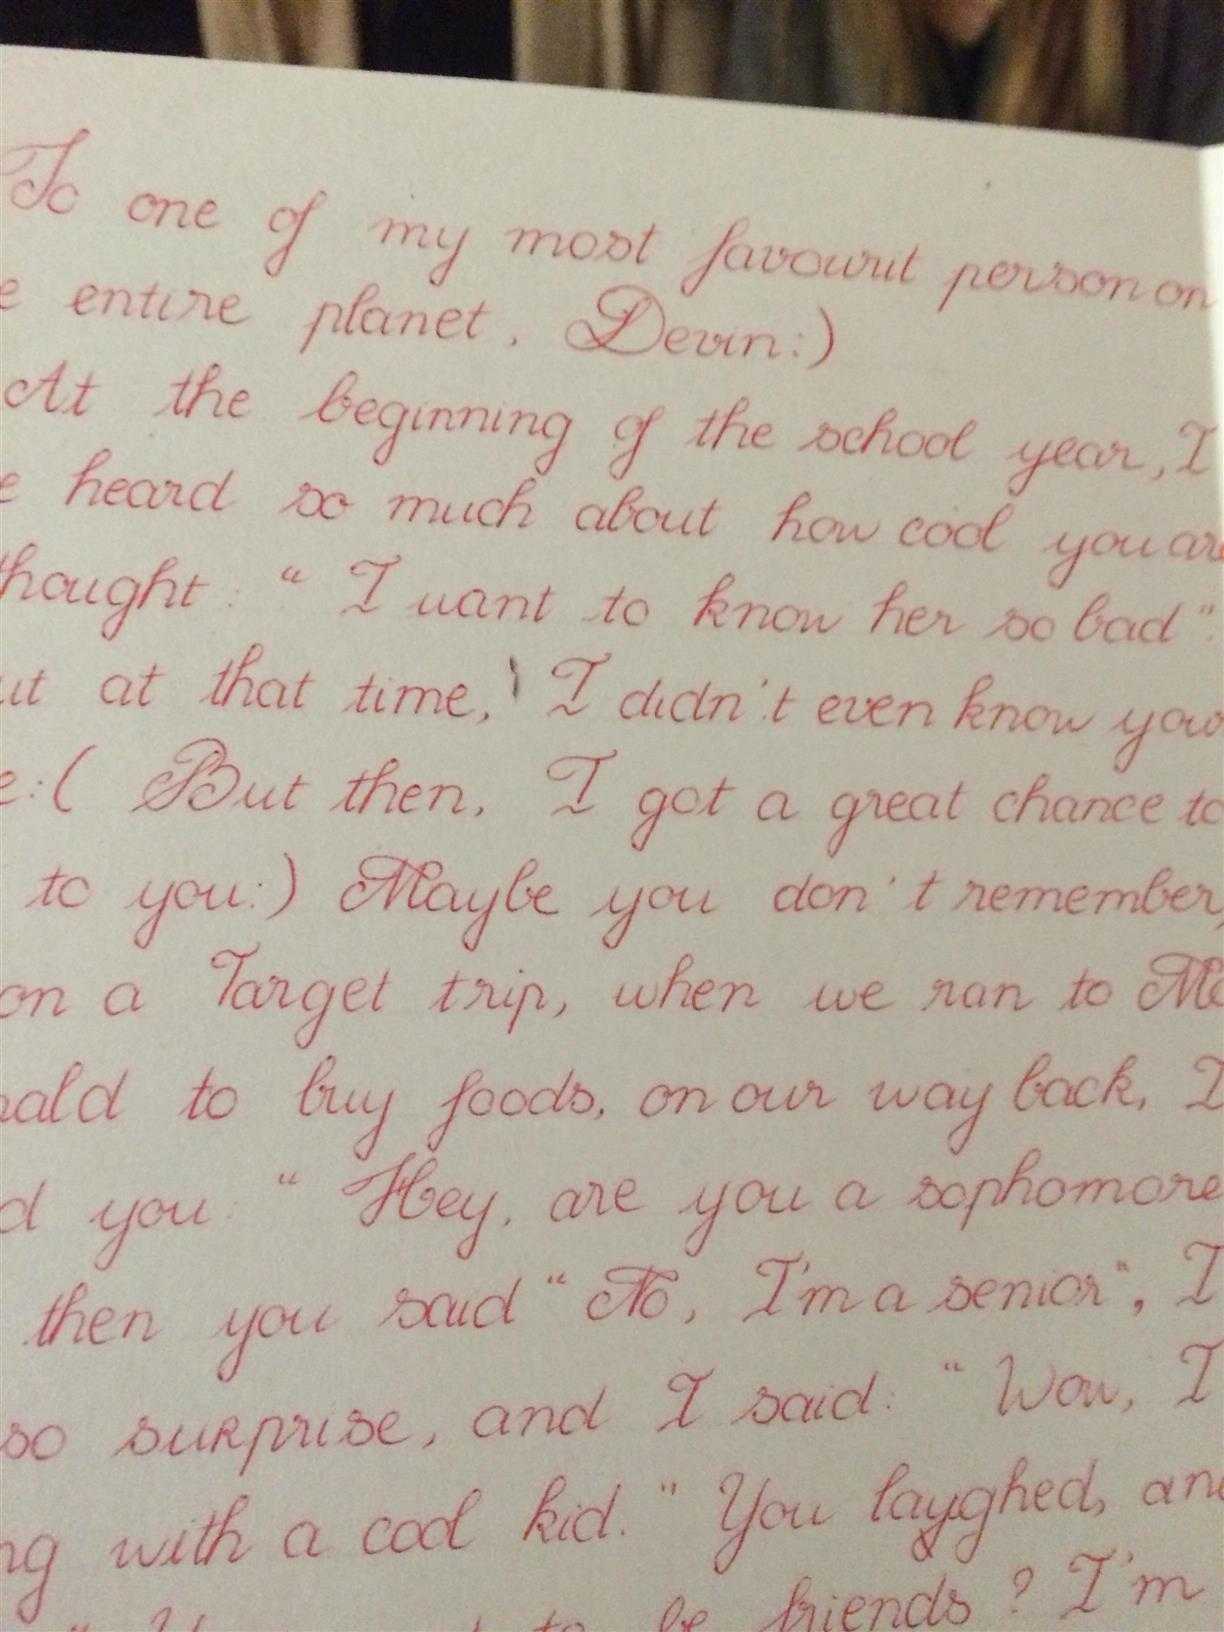 To one of my most favourit person on
e entire planet, Devin:)
At the beginning of the school year, I
e heard so much about how cool you are
hought: "I want to know her so bad".
ut at that time, I didn't even know you
e:( But then, I got a great chance to
to you:) Maybe you don't remember,
on a Target trip, when we ran to Mc
nald to buy foods, on our way back, I
d you: "Hey, are you a sophomore
then you said "No, I'm a senior", I
so surprise, and I said: "Wow, I
ng with a cool kid." You layghed, and
be friends? I'm